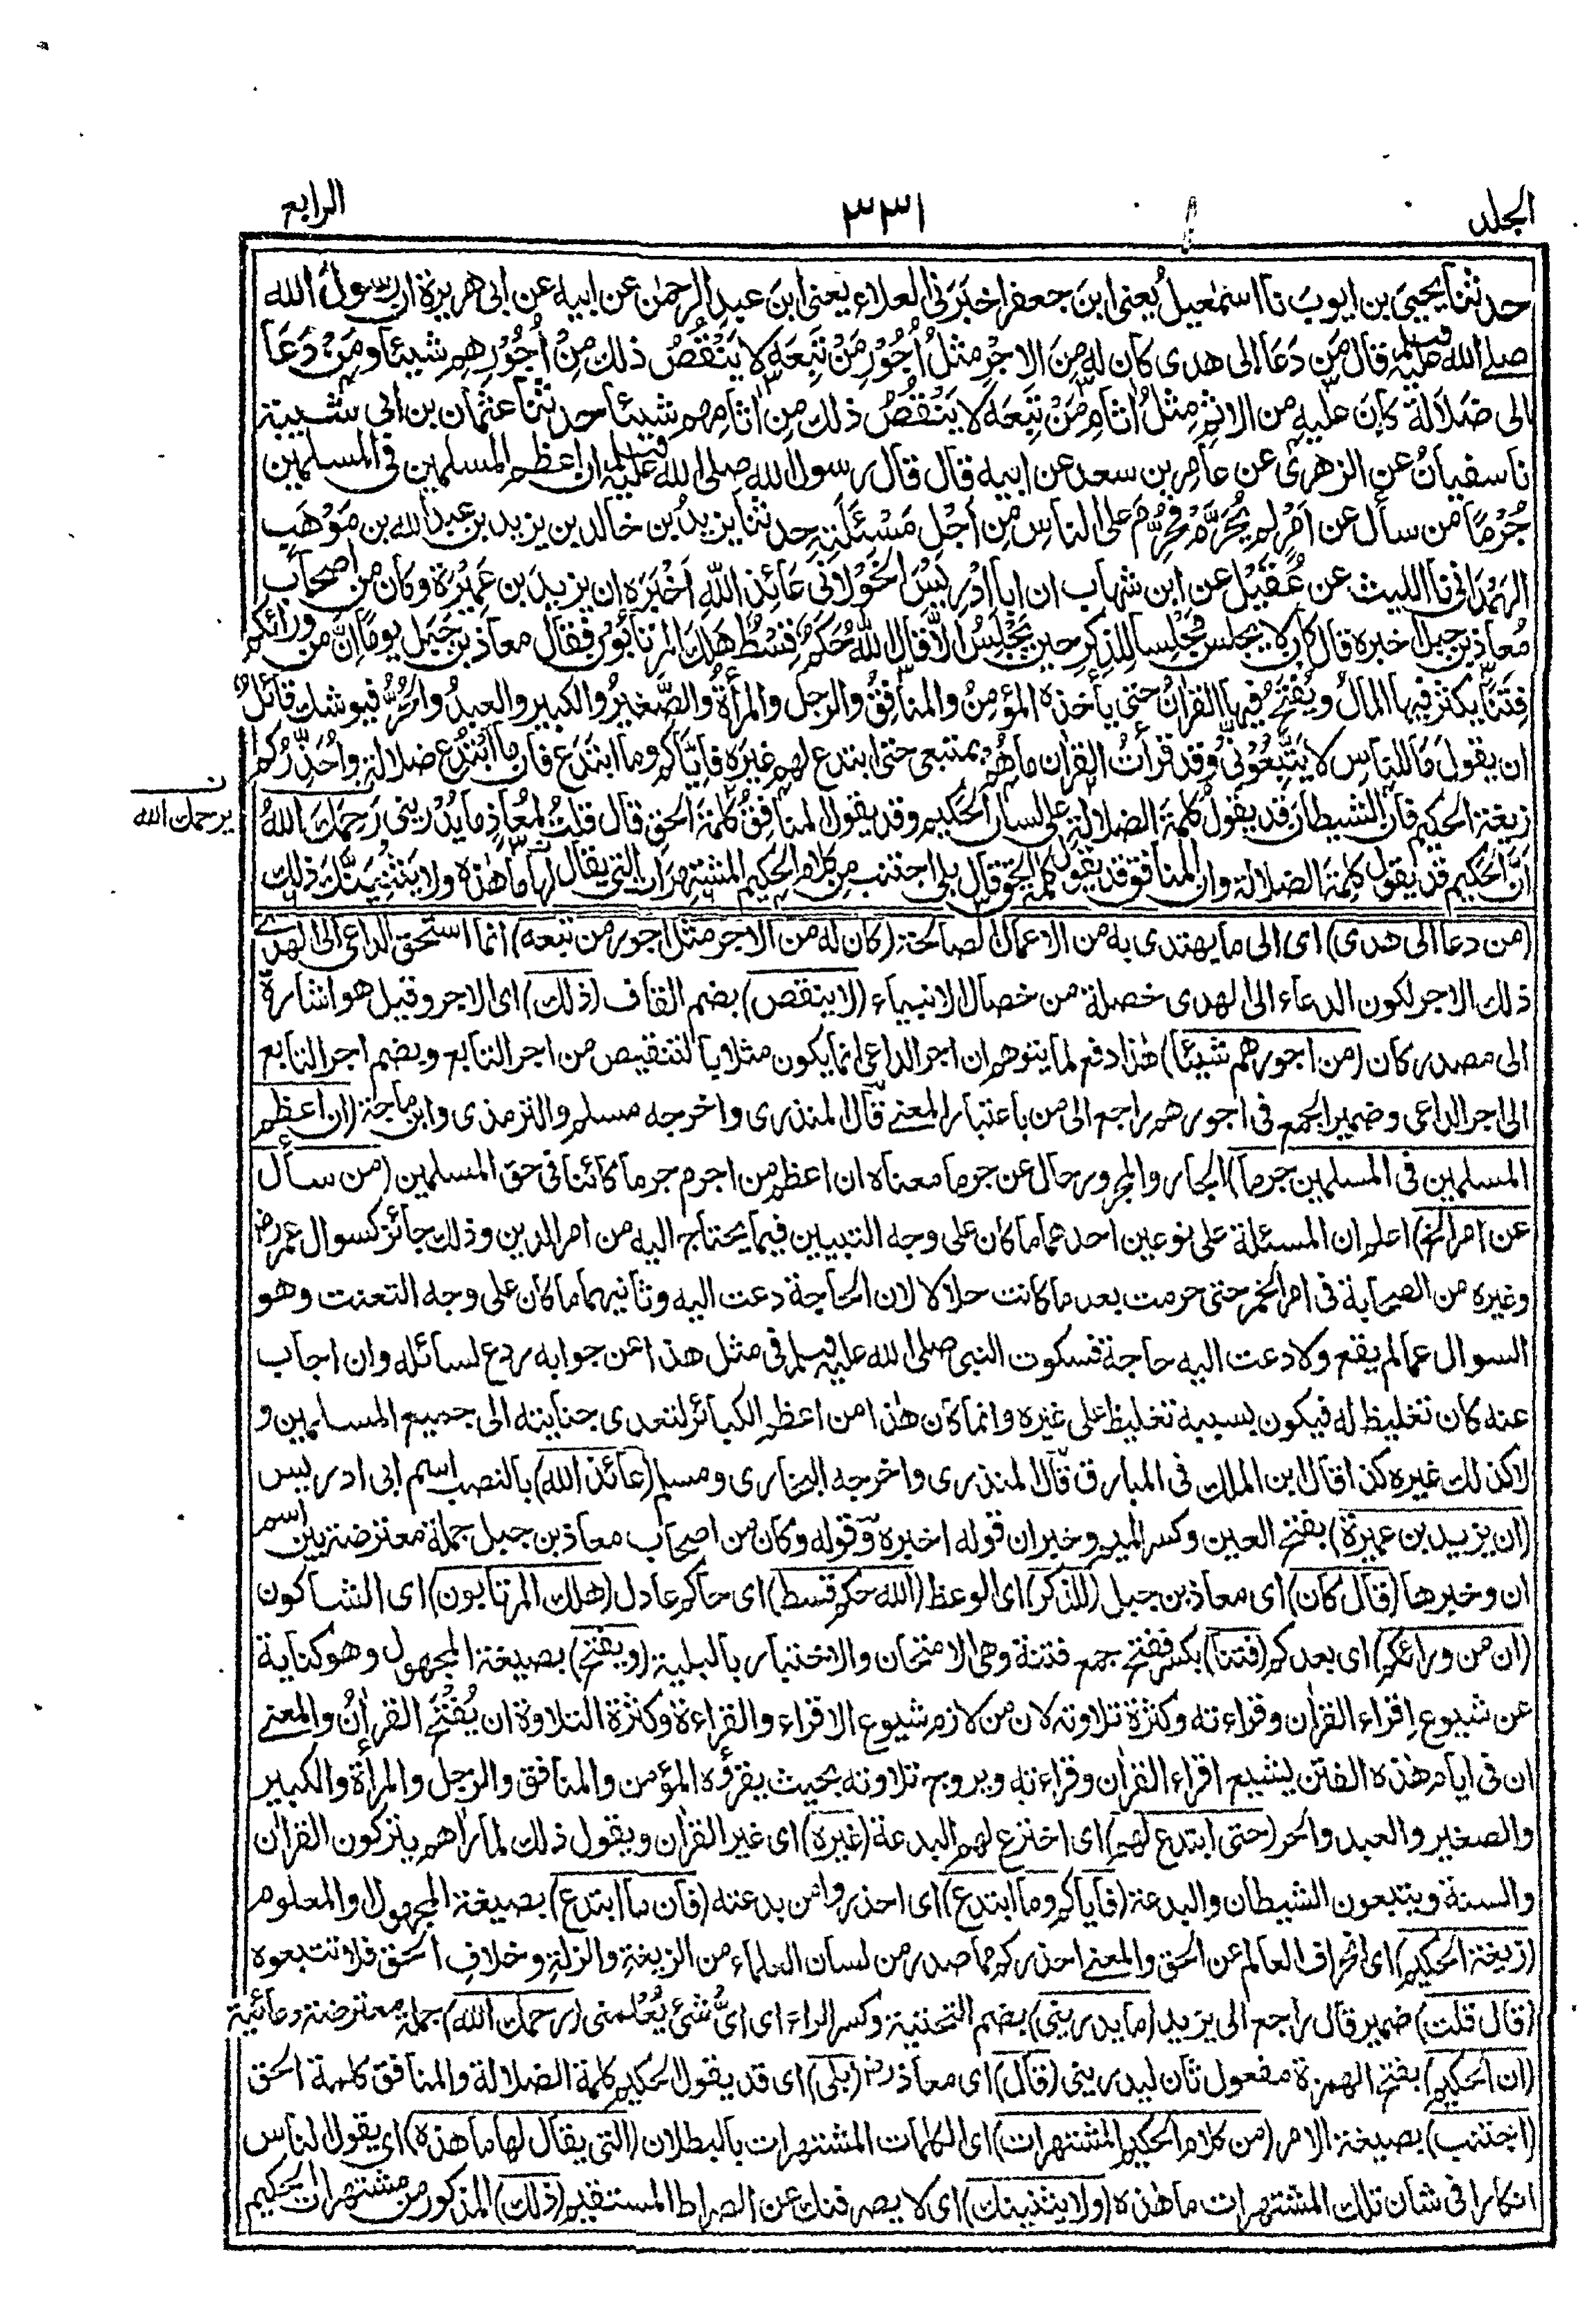 الجلد ٣٣١ الرابع
حدثنا يحيى بن ايوب نا اسمعيل يعنى ابن جعفر اخبرنى العلاء يعنى ابن عبد الرحمن عن ابيه عن ابى هريرة ان رسول الله
صلى الله عليه وسلم قال من دعا الى هدى كان له من الاجر مثل اجور من تبعه لا ينقص ذلك من اجورهم شيئا ومن دعا
الى ضلالة كان عليه من الاثم مثل اثام من تبعه لا ينقص ذلك من اثامهم شيئا حدثنا عثمان بن ابى شيبة
نا سفيان عن الزهرى عن عامر بن سعد عن ابيه قال قال رسول الله صلى الله عليه وسلم ان اعظم المسلمين فى المسلمين
جرما من سأل عن امر لم يحرم فحرم على الناس من اجل مسئلته حدثنا يزيد بن خالد بن يزيد بن عبد الله بن موهب
الهمدانى نا الليث عن عقيل عن ابن شهاب ان ابا ادريس الخولانى عائذ الله اخبره ان يزيد بن عميرة وكان من اصحاب
معاذ بن جبل اخبره قال كان لا يجلس مجلسا للذكر حين يجلس الا قال الله حكم قسط هلك المرتابون فقال معاذ بن جبل يوما ان من ورائكم
فتنا يكثر فيها المال ويفتح فيها القران حتى يأخذه المؤمن والمنافق والرجل والمرأة والصغير والكبير والعبد والحر فيوشك قائل
ان يقول ما للناس لا يتبعونى وقد قرأت القران ما هم بمتبعى حتى ابتدع لهم غيره فاياكم وما ابتدع فان ما ابتدع ضلالة واحذركم
زيغة الحكيم فان الشيطان قد يقول كلمة الضلالة على لسان الحكيم وقد يقول المنافق كلمة الحق قال قلت لمعاذ ما يدرينى رحمك الله
ن
يرحمك الله
ان الحكيم قد يقول كلمة الضلالة وان المنافق قد يقول كلمة الحق قال بلى اجتنب من كلام الحكيم المشتهرات التى يقال لها ما هذه ولا يثنينك ذلك
(من دعا الى هدى) اى الى ما يهتدى به من الاعمال الصالحة (كان له من الاجر مثل اجور من تبعه) انما استحق الداعى الى الهدى
ذلك الاجر لكون الدعاء الى الهدى خصلة من خصال الانبياء (لا ينقص) بضم القاف (ذلك) اى الاجر وقيل هو اشارة
الى مصدر كان (من اجورهم شيئا) هذا دفع لما يتوهم ان اجر الداعى انما يكون مثلا بالتنقيص من اجر التابع وبضم اجر التابع
الى اجر الداعى وضمير الجمع فى اجورهم راجع الى من باعتبار المعنى قال المنذرى واخرجه مسلم والترمذى وابن ماجة (ان اعظم
المسلمين فى المسلمين جرما) الجار والمجرور حال عن جرما معناه ان اعظم من اجرم جرما كائنا فى حق المسلمين (من سأل
عن امر الخ) اعلم ان المسئلة على نوعين احدهما ما كان على وجه التبيين فيما يحتاج اليه من امر الدين وذلك جائز كسوال عمر رض
وغيره من الصحابة فى امر الخمر حتى حرمت بعد ما كانت حلالا لان الحاجة دعت اليه وثانيهما ما كان على وجه التعنت وهو
السوال عما لم يقع ولا دعت اليه حاجة فسكوت النبى صلى الله عليه وسلم فى مثل هذا عن جوابه ردع لسائله وان اجاب
عنه كان تغليظ له فيكون بسببه تغليظ على غيره وانما كان هذا من اعظم الكبائر لتعدى جنايته الى جميع المسلمين و
لا كذلك غيره كذا قال ابن الملك فى المبارق قال المنذرى واخرجه البخارى ومسلم (عائذ الله) بالنصب اسم ابى ادريس
(ان يزيد بن عميرة) بفتح العين وكسر الميم وخبر ان قوله اخبره وقوله وكان من اصحاب معاذ بن جبل جملة معترضة بين اسم
ان وخبرها (قال كان) اى معاذ بن جبل (للذكر) اى الوعظ (الله حكم قسط) اى حاكم عادل (هلك المرتابون) اى الشاكون
(ان من ورائكم) اى بعدكم (فتنا) بكسر ففتح جمع فتنة وهى الامتحان والاختبار بالبلية (ويفتح) بصيغة المجهول وهو كناية
عن شيوع اقراء القران وقراءته وكثرة تلاوته لان من لازم شيوع الاقراء والقراءة وكثرة التلاوة ان يفتح القران والمعنى
ان فى ايام هذه الفتن يشيع اقراء القران وقراءته ويروج تلاوته بحيث يقرؤه المؤمن والمنافق والرجل والمرأة والكبير
والصغير والعبد والحر (حتى ابتدع لهم) اى اخترع لهم البدعة (غيره) اى غير القران ويقول ذلك لما راهم يتركون القران
والسنة ويتبعون الشيطان والبدعة (فاياكم وما ابتدع) اى احذروا من بدعته (فان ما ابتدع) بصيغة المجهول والمعلوم
(زيغة الحكيم) اى انحراف العالم عن الحق والمعنى احذركم مما صدر من لسان العلماء من الزيغة والزلة وخلاف الحق فلا تتبعوه
(قال قلت) ضمير قال راجع الى يزيد (ما يدرينى) بضم التحتية وكسر الراء اى اى شئ يعلمنى (رحمك الله) جملة معترضة دعائية
(ان الحكيم) بفتح الهمزة مفعول ثان ليدرينى (قال) اى معاذ رض (بلى) اى قد يقول الحكيم كلمة الضلالة والمنافق كلمة الحق
(اجتنب) بصيغة الامر (من كلام الحكيم المشتهرات) اى الكلمات المشتهرات بالبطلان (التى يقال لها ما هذه) اى يقول الناس
انكارا فى شان تلك المشتهرات ما هذه (ولا يثنينك) اى لا يصرفنك عن الصراط المستقيم (ذلك) المذكور من مشتهرات الحكيم